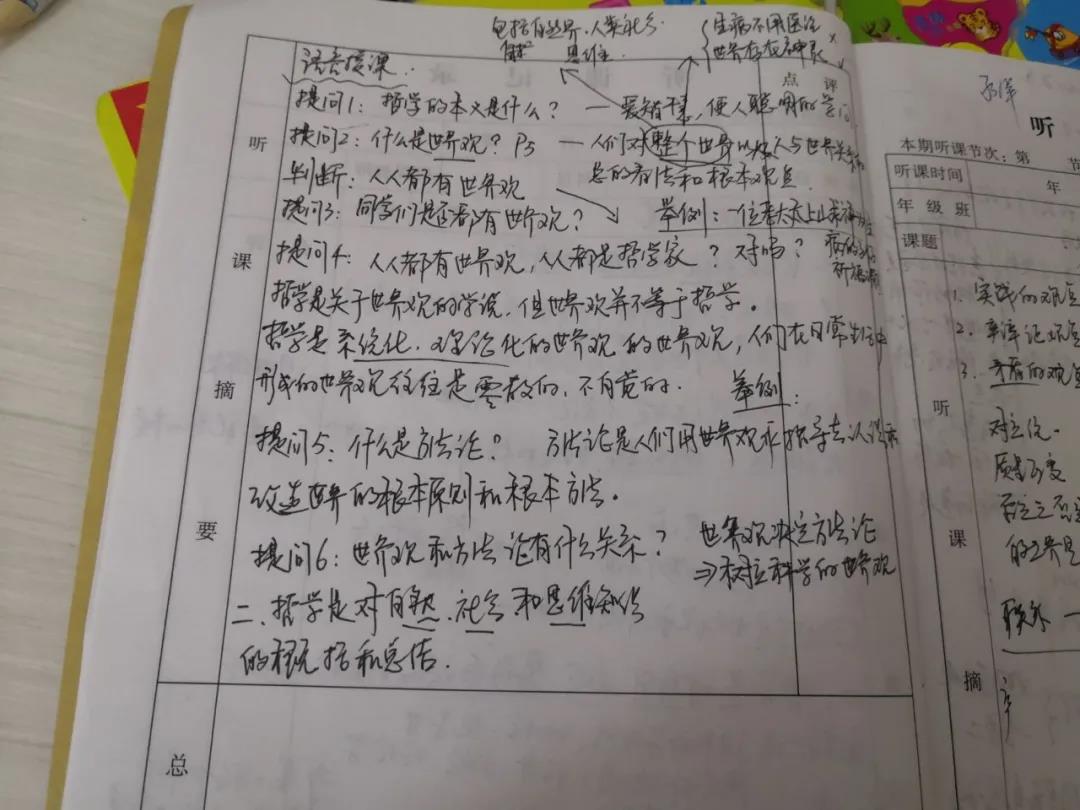 包括自然界、人类社会
思维
生病不用医治 ×
世界存在神灵
语言授课.
点评
提问1: 哲学的本义是什么? — 爱智慧, 使人聪明的学问
听
提问2: 什么是世界观? P5 — 人们对整个世界以及人与世界关系的
总的看法和根本观点.
判断: 人人都有世界观
提问3: 同学们是否都有世界观? 举例: 一位老太太上山
病的
祈福
课
提问4: 人人都有世界观, 人人都是哲学家? 对吗?
哲学是关于世界观的学说, 但世界观并不等于哲学。
哲学是系统化、理论化的世界观的世界观, 人们在日常生活中
摘
形成的世界观往往是零散的, 不自觉的. 举例:
提问5: 什么是方法论? 方法论是人们用世界观作指导去认识和
改造世界的根本原则和根本方法。
要
提问6: 世界观和方法论有什么关系? 世界观决定方法论
⇒树立科学的世界观
二、哲学是对自然、社会和思维知识
的概括和总结.
总
听
本期听课节次: 第 节
听课时间 年
年级班
课题
1. 实践的观点
2. 辩证论观点
3. 矛盾的观点
听
对立统一
质量互变
否定之否定
课
联系 一
摘